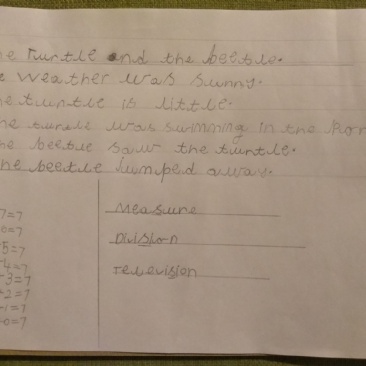 he Turtle and the beetle.
e weather was sunny.
he turtle is little.
he turtle was swimming in the
he beetle saw the turtle.
he beetle jumped away.
7=7
0=7
5=7
4=7
3=7
+2=7
-1=7
-0=7
Measure
Division
Television